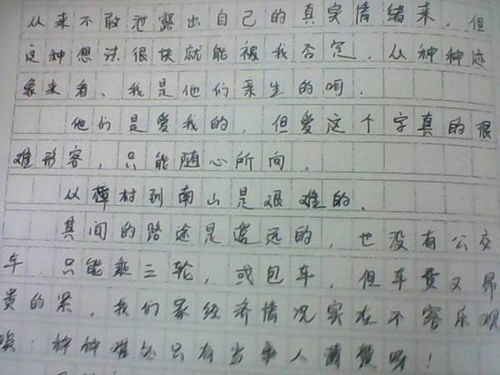 从来不敢泄露出自己的真实情绪来，但
这种想法很快就能被我否定，从种种迹
象来看、我是他们亲生的呵．
他们是爱我的，但爱这个字真的很
难形容，只能随心所向，
从樟村到南山是艰难的．
其间的路途是遥远的，也没有公交
车 只能乘三轮，或包车，但车费又昂
贵的累，我们家经济情况实在不容乐观
唉！种种难处只有当事人清楚呀！